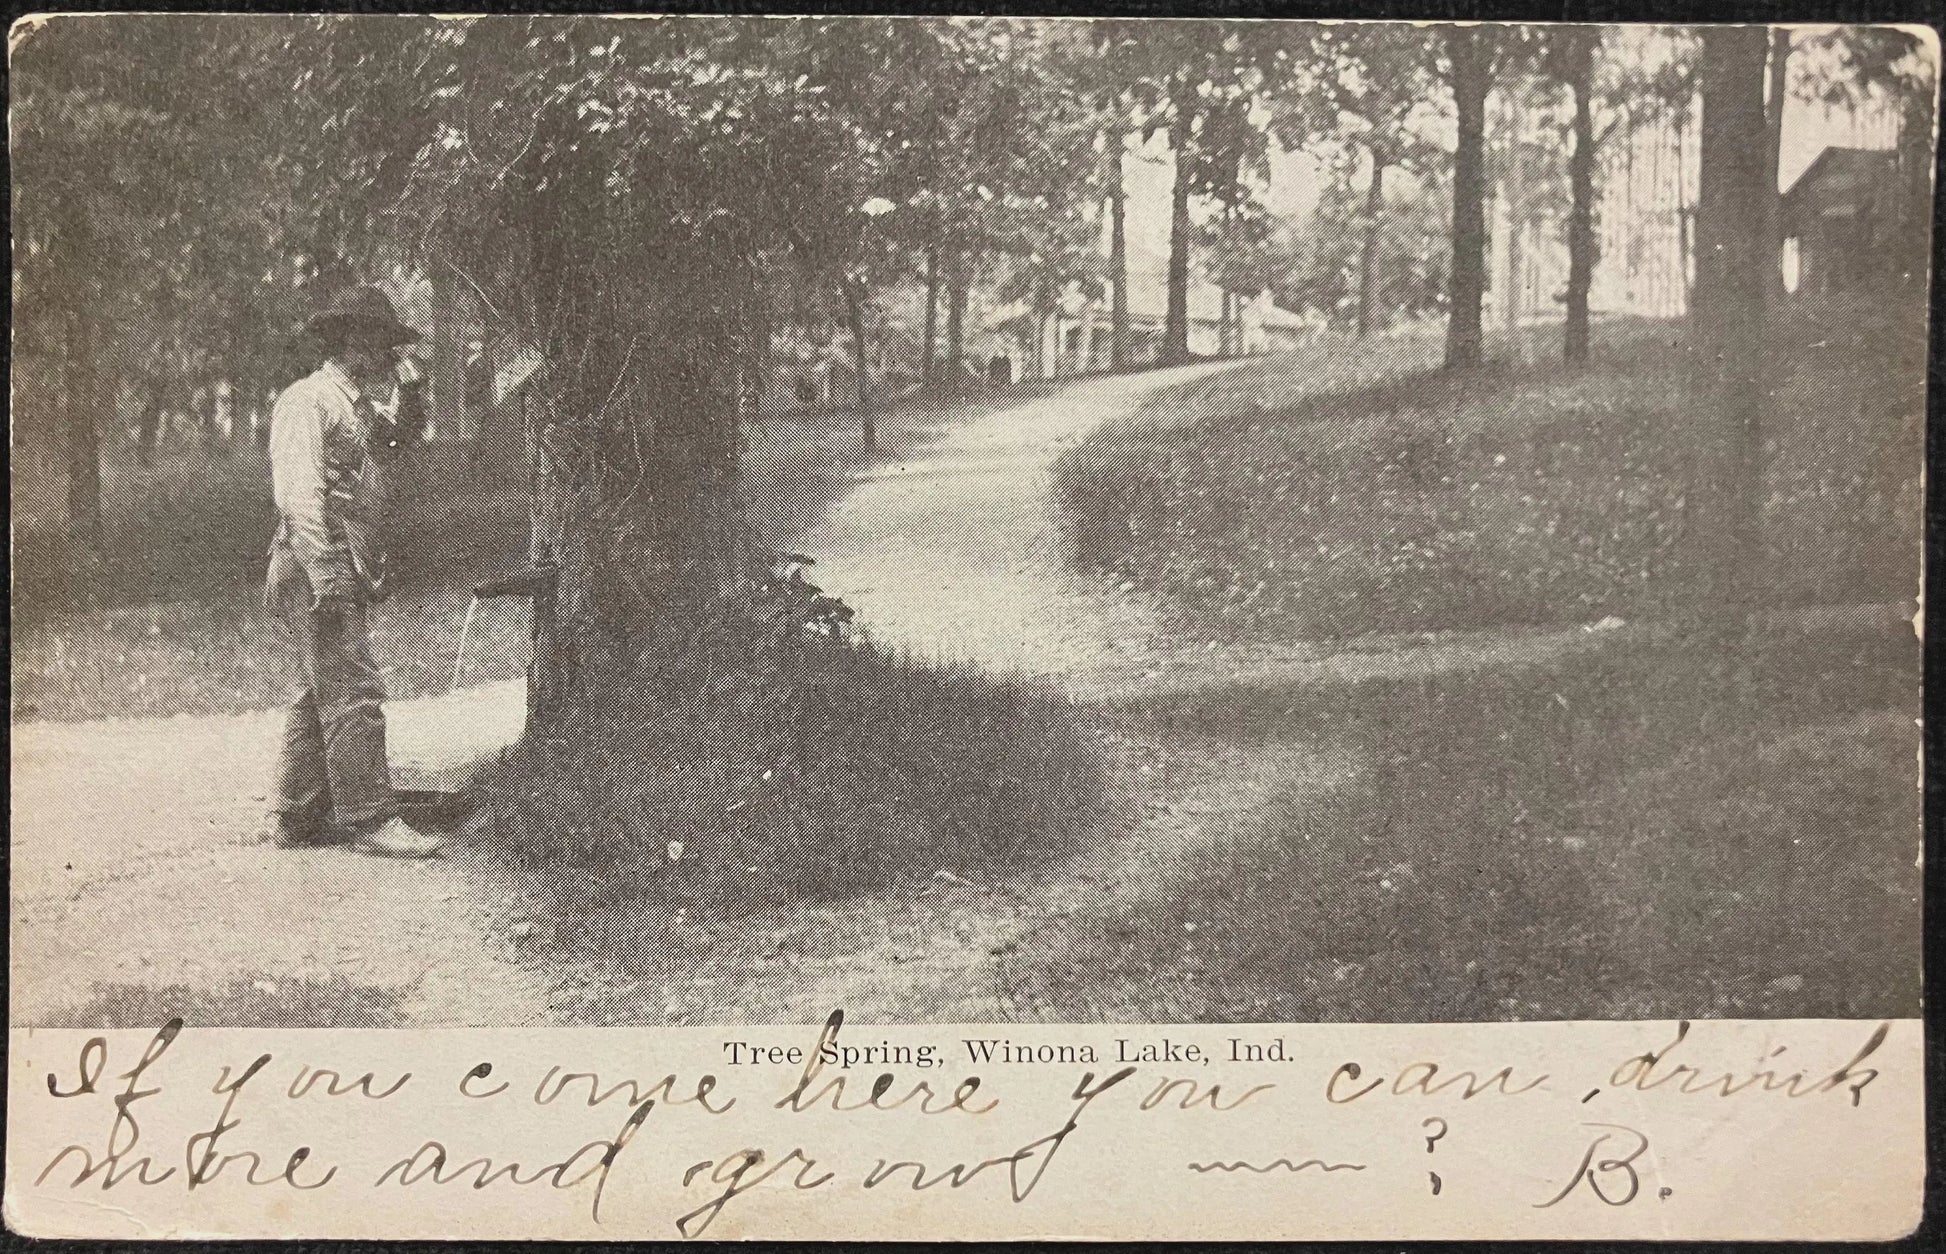 Tree Spring, Winona Lake, Ind.
If you come here you can drink
more and grow ~~~ ? B.